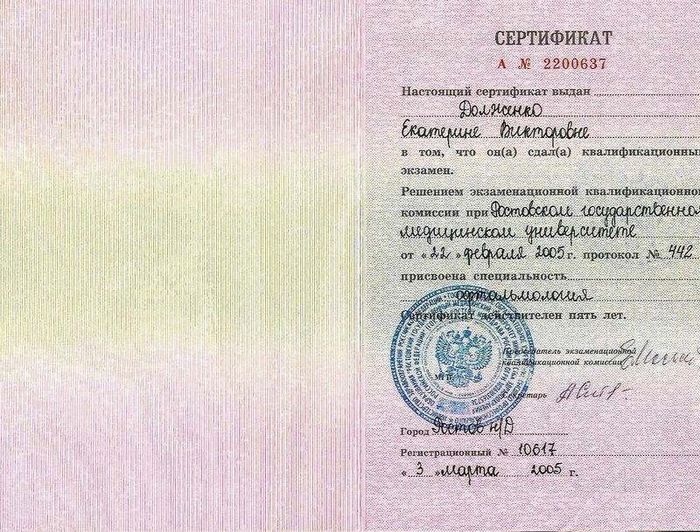 СЕРТИФИКАТ
А № 2200637
Настоящий сертификат выдан
Долженко
Екатерине Викторовне
в том, что он(а) сдал(а) квалификационный
экзамен.
Решением экзаменационной квалификационной
комиссии при Ростовском государственном
медицинском университете
от «22» февраля 2005 г. протокол № 442
присвоена специальность
офтальмология
Сертификат действителен пять лет.
Председатель экзаменационной
квалификационной комиссии
Секретарь
Город Ростов н/Д
Регистрационный № 10617
«3» марта 2005 г.